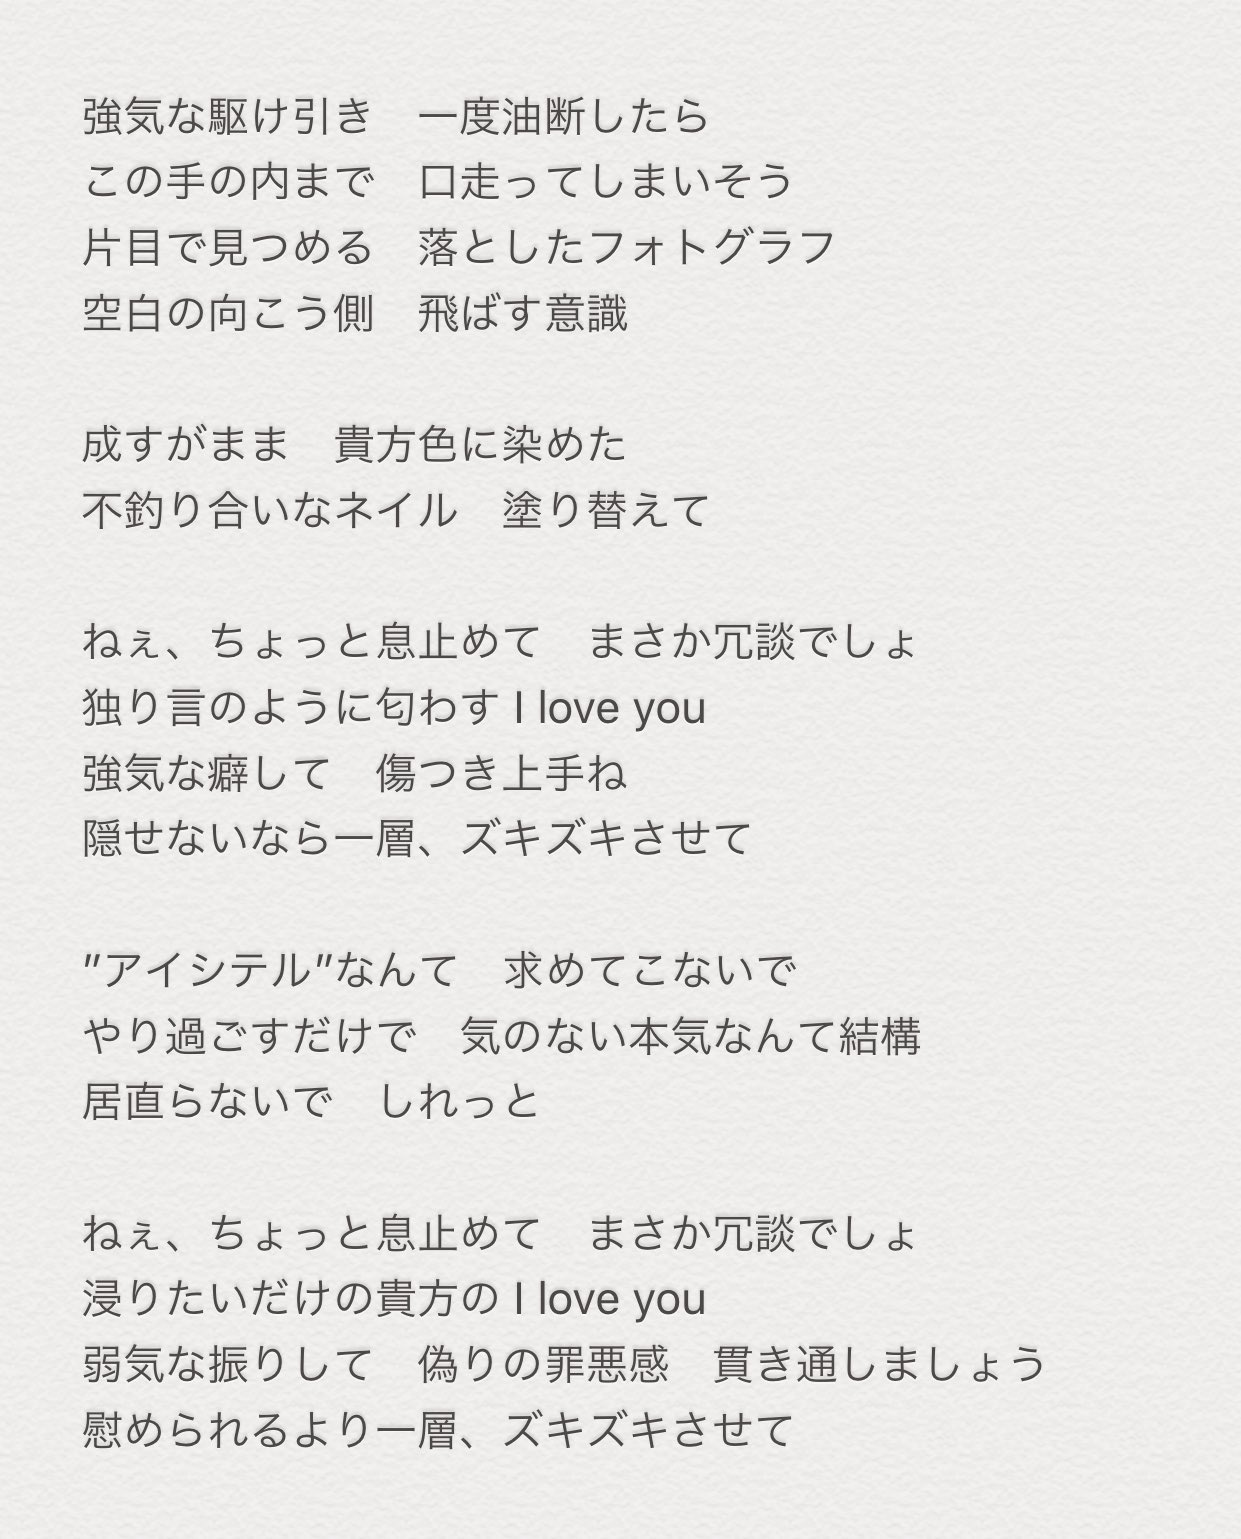 強気な駆け引き　一度油断したら
この手の内まで　口走ってしまいそう
片目で見つめる　落としたフォトグラフ
空白の向こう側　飛ばす意識
成すがまま　貴方色に染めた
不釣り合いなネイル　塗り替えて
ねぇ、ちょっと息止めて　まさか冗談でしょ
独り言のように匂わす I love you
強気な癖して　傷つき上手ね
隠せないなら一層、ズキズキさせて
"アイシテル"なんて　求めてこないで
やり過ごすだけで　気のない本気なんて結構
居直らないで　しれっと
ねぇ、ちょっと息止めて　まさか冗談でしょ
浸りたいだけの貴方の I love you
弱気な振りして　偽りの罪悪感　貫き通しましょう
慰められるより一層、ズキズキさせて